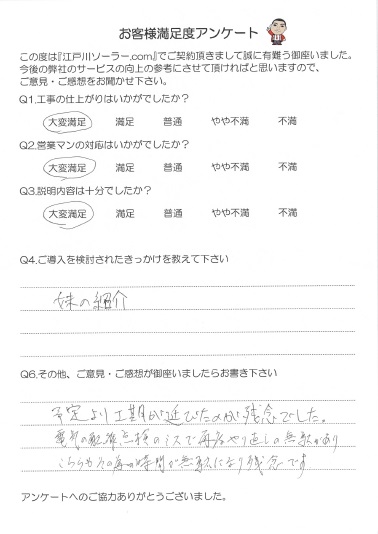 お客様満足度アンケート
この度は『江戸川ソーラー.com』でご契約頂きまして誠に有難う御座いました。
今後の弊社のサービスの向上の参考にさせて頂ければと思いますので、
ご意見・ご感想をお聞かせ下さい。
Q1.工事の仕上がりはいかがでしたか?
大変満足 満足 普通 やや不満 不満
Q2.営業マンの対応はいかがでしたか?
大変満足 満足 普通 やや不満 不満
Q3.説明内容は十分でしたか?
大変満足 満足 普通 やや不満 不満
Q4.ご導入を検討されたきっかけを教えて下さい
妹の紹介
Q6.その他、ご意見・ご感想が御座いましたらお書き下さい
予定より工期が延びたのが残念でした。
電気の配線点検のミスで再度やり直しの無駄があり
こちらもその為の時間が無駄になり残念です
アンケートへのご協力ありがとうございました。